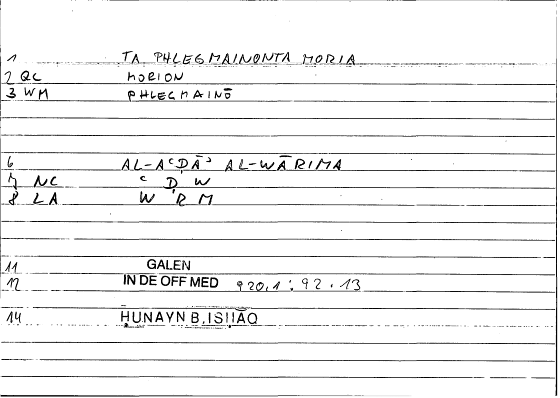 1 TA PHLEGMAINONTA MORIA
2 QC MORION
3 WM PHLEGMAINŌ
6 AL-AʿḌĀʾ AL-WĀRIMA
7 NC ʿ Ḍ W
8 LA W R M
11 GALEN
12 IN DE OFF MED 920,1 : 92.13
14 ḤUNAYN B. ISḤĀQ